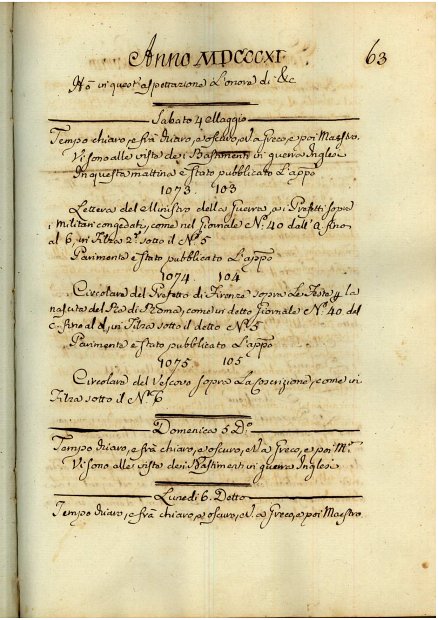 Anno MDCCCXI 63
Ho in quest'aspettazione l'onore di &c
Sabato 4 Maggio
Tempo chiaro, e frà chiaro, e oscuro, V. a Greco, e poi Maestro.
Vi sono alle viste dei Bastimenti in guerra Inglesi
In questa mattina è stato pubblicato l'appo
1073 103
Lettera del Ministro della Guerra, a i Prefetti sopra
i militari congedati, come nel Giornale No. 40 dall' a fino
al 6, in Filza 2a sotto il No 5
Parimente è stato pubblicato l'appo
1074 104
Circolare del Prefetto di Firenze sopra le Feste p la
nascita del Re di Roma, come in detto Giornale No. 40 dal
c fino al d, in Filza sotto il detto No 5
Parimente è stato pubblicato l'appo
1075 105
Circolare del Vescovo sopra la Coscrizione, come in
Filza sotto il No 6
Domenica 5 Do
Tempo chiaro, e frà chiaro, e oscuro, V. a Greco, e poi Mo
Vi sono alle viste dei Bastimenti in guerra Inglesi
Lunedi 6. Detto
Tempo chiaro, e frà chiaro, e oscuro, V. a Greco, e poi Maestro